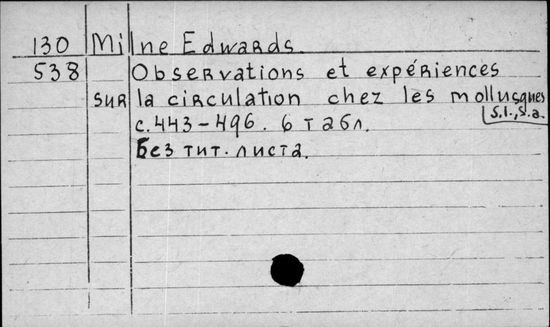 130 Milne Edwards
538 Observations et expériences
sur la circulation chez les mollusques
s.l., s.a.
с. 443-496. 6 табл.
Без тит. листа.